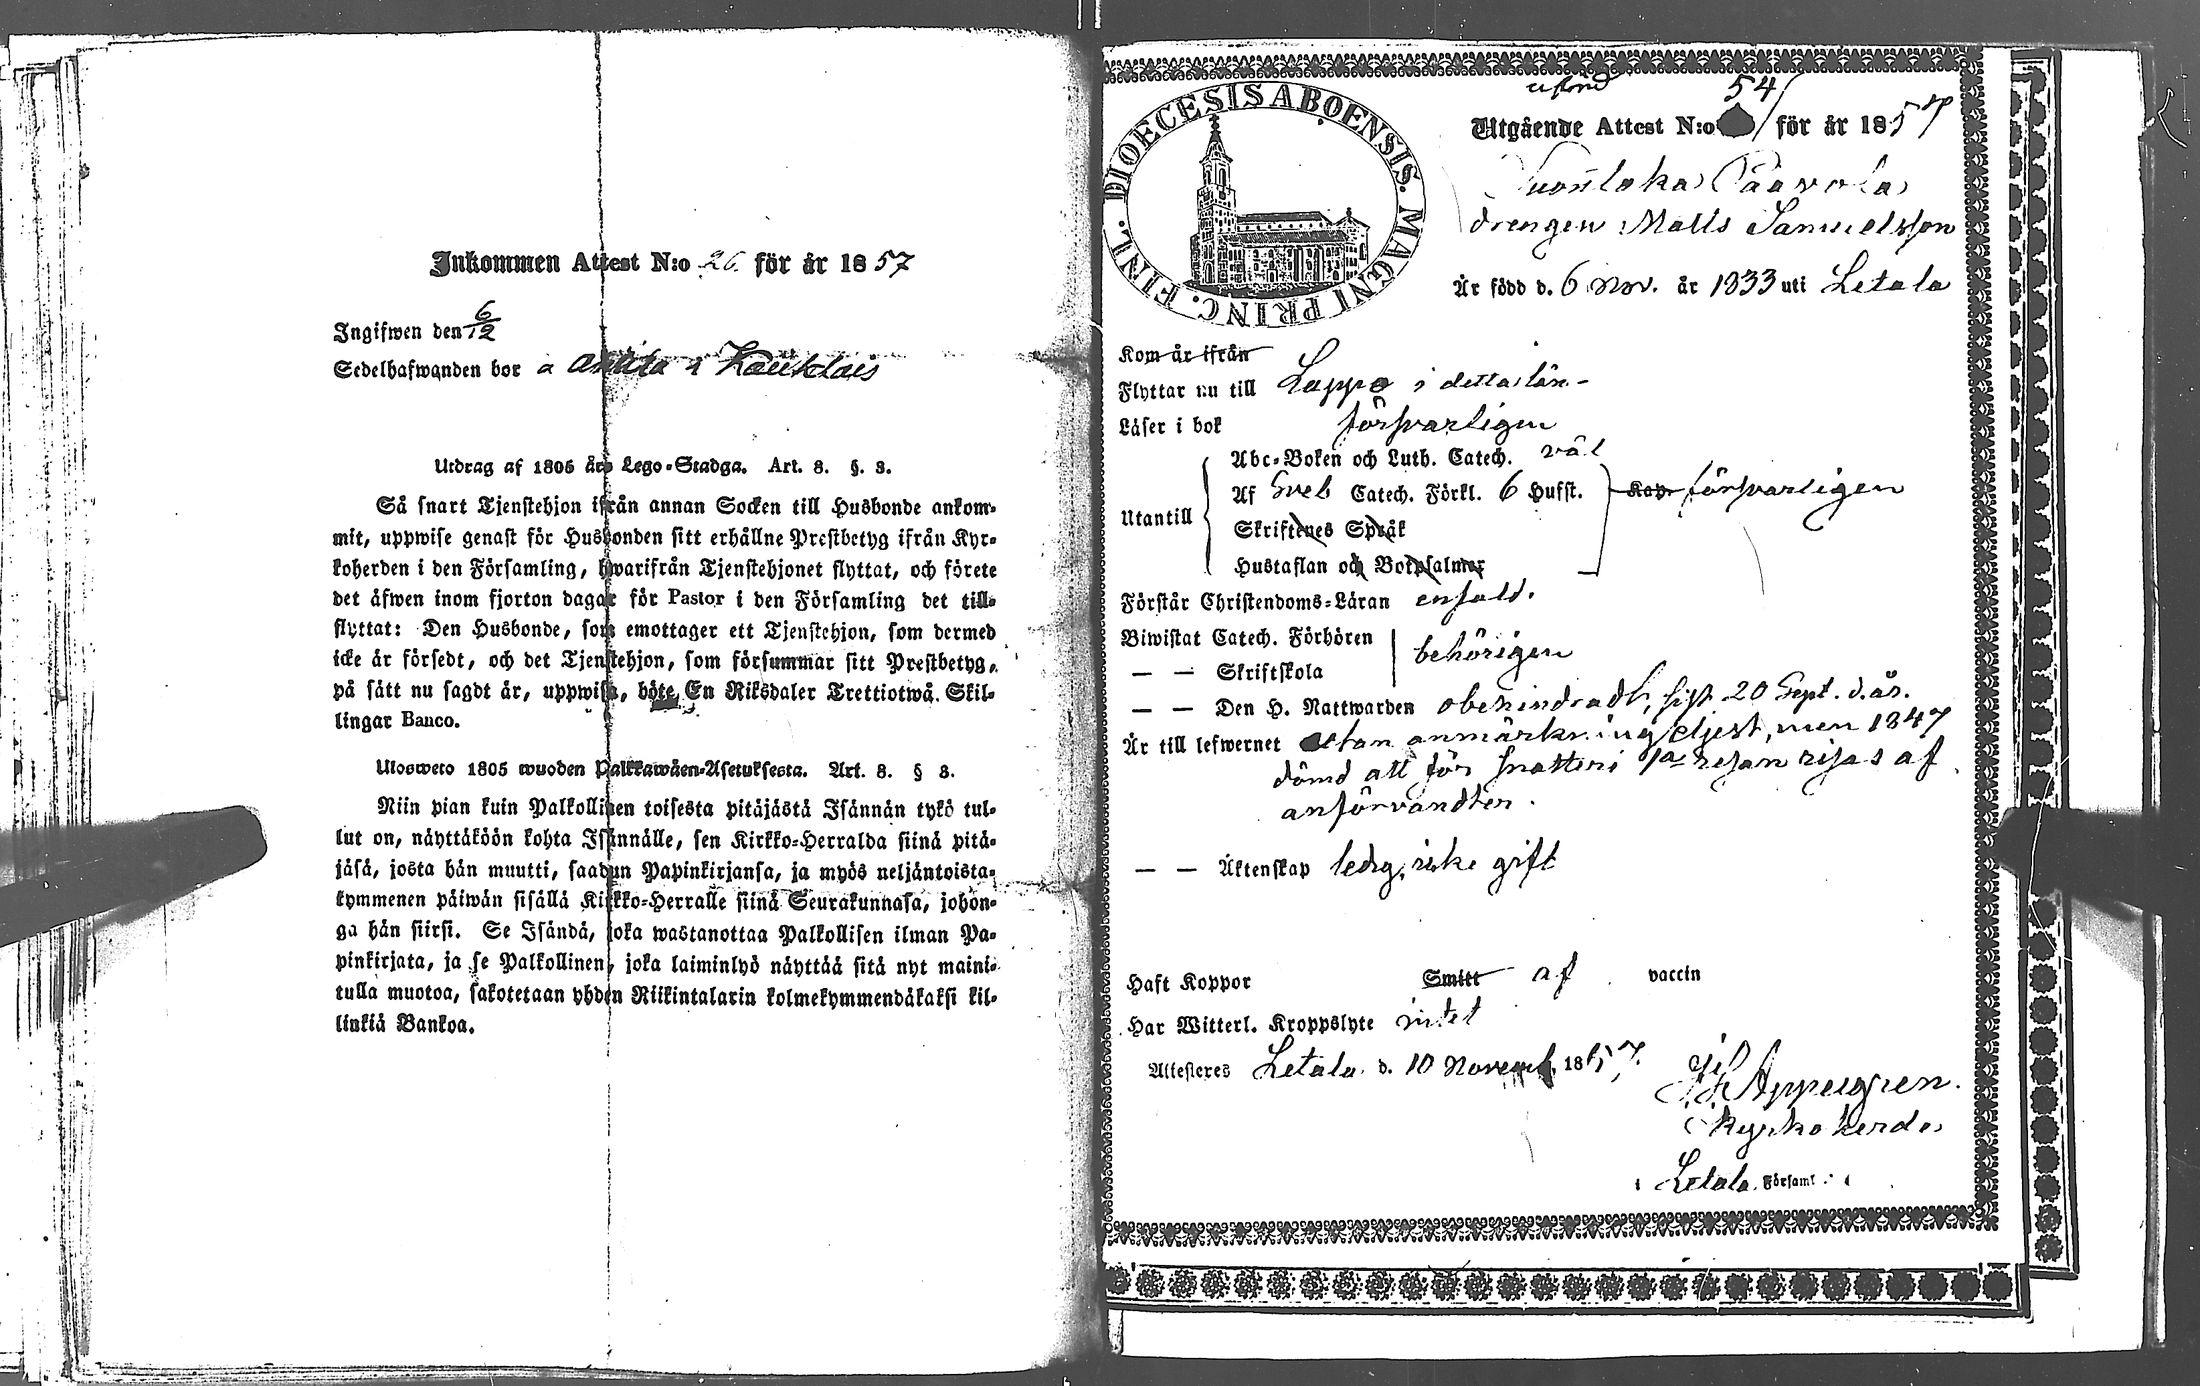 Inkommen Attest N:o 26. för år 1857
Ingifwen den 6/12
Sedelhafwanden bor a Anttila i Kauklais
Utdrag af 1805 års Lego-Stadga. Art. 8. §. 3.
Så snart Tjenstehjon ifrån annan Socken till Husbonde ankom-
mit, uppwise genast för Husbonden sitt erhållne Prestbetyg ifrån Kyr-
koherden i den Församling, hwarifrån Tjenstehjonet flyttat, och förete
det äfwen inom fjorton dagar för Pastor i den Församling det till-
flyttat: Den Husbonde, som emottager ett Tjenstehjon, som dermed
icke är försedt, och det Tjenstehjon, som försummar sitt Prestbetyg,
på sätt nu sagdt är, uppwisa, böte En Riksdaler Trettiotwå Skil-
lingar Banco.
Ulosweto 1805 wuoden Palkkawäen-Asetuksesta. Art. 8. § 3.
Niin pian kuin Palkollinen toisesta pitäjästä Isännän tykö tul-
lut on, näyttäköön kohta Isännälle, sen Kirkko-Herralda siinä pitä-
jäsä, josta hän muutti, saadun Papinkirjansa, ja myös neljäntoista-
kymmenen päiwän sisällä Kirkko-Herralle siinä Seurakunnasa, johon-
ga hän siirsi. Se Isändä, joka wastanottaa Palkollisen ilman Pa-
pinkirjata, ja se Palkollinen, joka laiminlyö näyttää sitä nyt maini-
tulla muotoa, sakotetaan yhden Riikintalarin kolmekymmendäkaksi kil-
linkiä Bankoa.
DIOECESIS ABOENSIS. MAGNI PRINC. FINL.
54
Utgående Attest N:o för år 1857
Paavola
drengen Matts Samuelsson
Är född d. 6 Nov. år 1833 uti Letala
Kom år ifrån
Flyttar nu till Lappo i detta län-
Läser i bok försvarligen
Abc-Boken och Luth. Catech. väl
Af Sveb Catech. Förkl. 6 Hufst. Kap. försvarligen
Utantill
Skriftenes Språk
Hustaflan och Botpsalmer
Förstår Christendoms-Läran enfald.
Biwistat Catech. Förhören
behörigen
— — Skriftskola
— — Den H. Nattwarden obehindradt, sist 20 Sept. d.är.
Är till lefwernet utan anmärkning eljest, men 1847
dömd att för snatteri 1a resan risas af
anförvandter.
— — Äktenskap ledig, icke gift
Haft Koppor Smitt af vaccin
Har Witterl. Kroppslyte intet
Attesteres Letala d. 10 Novemb. 1857.
Appelgren.
Kyrkoherde
i Letala Församl.